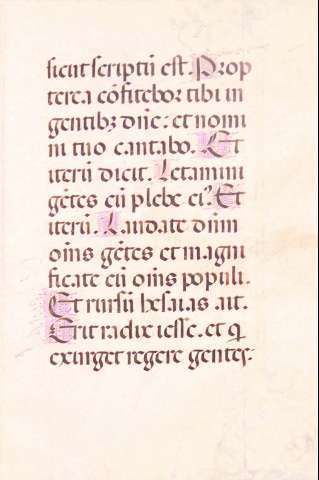 sicut scriptũ est. Prop
terea cõfitebor tibi in
gentibꝫ dñe: et nomi
ni tuo cantabo. Et
iterũ dicit. Letamini
gẽtes cũ plebe eiꝰ. Et
iterũ. Laudate dñm
oñis gẽtes et magni
ficate eũ oñis populi.
Et rursũ hesaias ait.
Erit radix iesse. et q̃
exurget regere gentes.